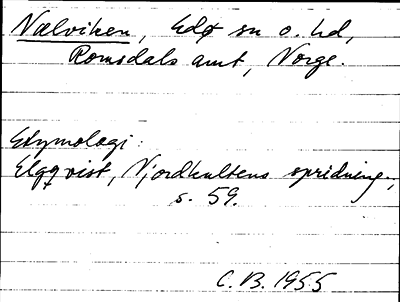 Nælviken, Edø sn o. hd,
Romsdals amt, Norge.
Etymologi:
Elgqvist, Njordkultens spridning,
s. 59.
C.B. 1955